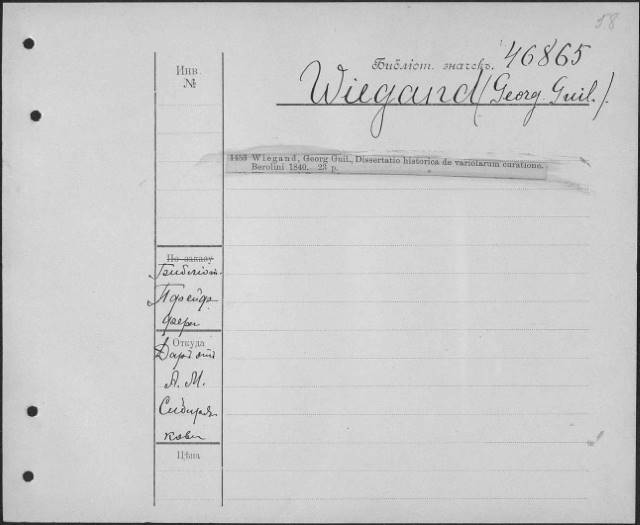 58
Библіот. значекъ. 46865
Wiegand (Georg Guil.).
Инв.
№
1453 Wiegand, Georg Guil., Dissertatio historica de variolarum curatione.
Berolini 1840. 23 p.
По заказу
Библіот.
Пфейф
фера
Откуда
Даръ отъ
А. М.
Сибиря
кова
Цѣна